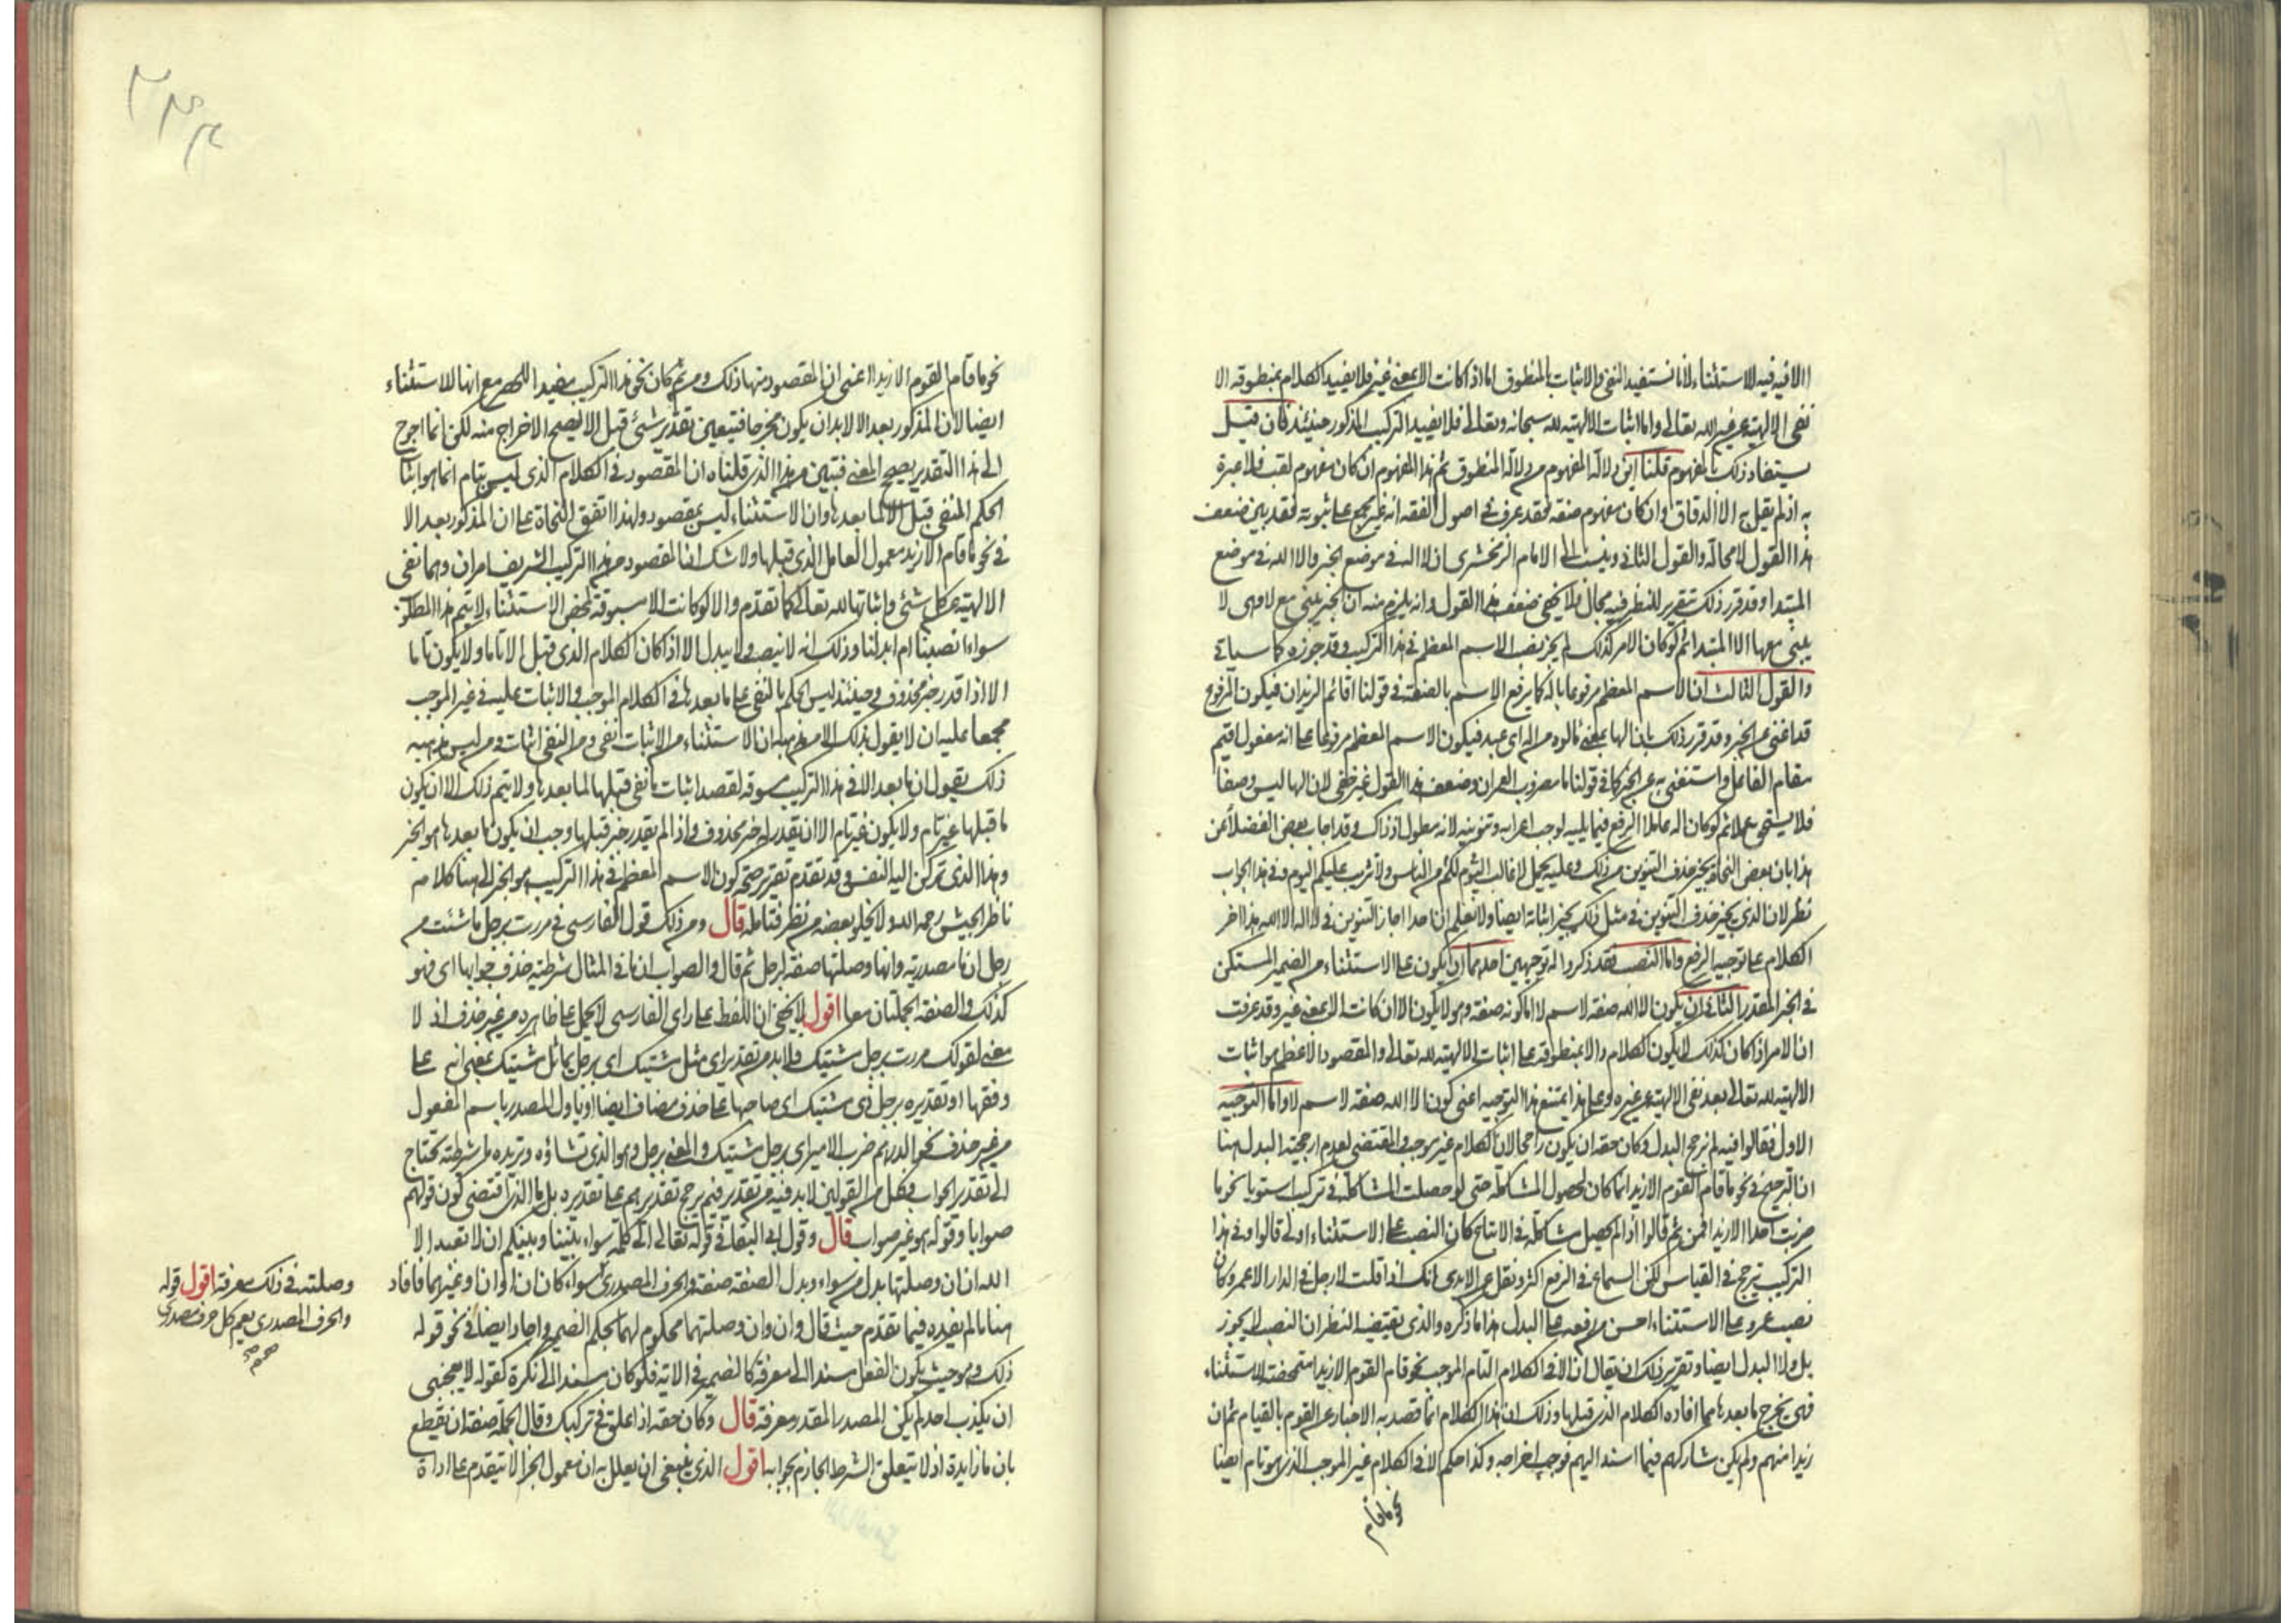 الا فيه فيه للاستثناء لانا نستفيد النفى والاثبات بالمنطوق اما اذا كانت الا بمعنى غير فلا يفيد الكلام بمنطوقه الا
نفى الالهية عن غير الله تعالى واما اثبات الالهية لله سبحانه وتعالى فلا يفيد التركيب المذكور حينئذ فان قيل
يستفاد ذلك بالمفهوم قلنا اين دلالة المفهوم من دلالة المنطوق ثم هذا المفهوم ان كان مفهوم لقب فلا عبرة
به اذ لم يقل به الا الدقاق وان كان مفهوم صفة فقد عرف فى اصول الفقه انه غير مجمع على ثبوته فقد تبين ضعف
هذا القول لا محالة والقول الثانى وينسب الى الامام الزمخشرى ان لا اله فى موضع الخبر والا الله فى موضع
المبتدا وقد قرر ذلك بتقرير للنظر فيه مجال فلا يخفى ضعف هذا القول وانه يلزم منه ان الخبر يبنى مع لا وهى لا
يبنى معها الا المبتدا ثم لو كان الامر كذلك لم يجز نصب الاسم المعظم فى هذا التركيب وقد جوزوه كما سياتى
والقول الثالث ان الاسم المعظم مرفوعا باله كما يرفع الاسم بالصفة فى قولنا اقائم الزيدان فيكون المرفوع
قد اغنى عن الخبر وقد قرر ذلك بان الها بمعنى مالوه من اله اى عبد فيكون الاسم المعظم مرفوعا على انه مفعول اقيم
مقام الفاعل واستغنى به عن الخبر كما فى قولنا ما مضروب العمران وضعف هذا القول غير خفى لان الها ليس وصفا
فلا يستحق عملا ثم لو كان اله عاملا الرفع فيما يليه لوجب اعرابه وتنوينه لانه مطول اذ ذاك وقد اجاب بعض الفضلا عن
هذا بان بعض النحاة يجيز حذف التنوين من ذلك وعليه يحمل لا غالب اليوم لكم من الناس ولا تثريب عليكم اليوم وفى هذا الجواب
نظر لان الذى يجيز حذف التنوين فى مثل ذلك يجيز اثباته ايضا ولا نعلم ان احدا اجاز التنوين فى لا اله الا الله هذا اخر
الكلام على توجيه الرفع واما النصب فقد ذكروا له توجيهين احدهما ان يكون على الاستثناء من الضمير المستكن
فى الخبر المقدر الثانى ان يكون الا الله صفة لاسم لا اما كونه صفة وهو لا يكون الا ان كانت الا بمعنى غير وقد عرفت
ان الامر اذا كان كذلك لا يكون الكلام دالا بمنطوقه على اثبات الالهية لله تعالى والمقصود الاعظم هو اثبات
الالهية لله تعالى بعد نفى الالهية عن غيره وعلى هذا يمتنع هذا التوجيه اعنى كون الا الله صفة لاسم لا واما التوجيه
الاول فقالوا فيه لم نرجح البدل وكان حقه ان يكون راجحا لان الكلام غير موجب والمقتضى لعدم ارجحية البدل هنا
ان الترجيح فى نحو ما قام القوم الا زيد انما كان لحصول المشاكلة حتى لو حصلت المشاكلة فى تركيب استويا نحو ما
ضربت احدا الا زيدا فمن ثم قالوا اذا لم تحصيل مشاكلة فى الاتباع كان النصب على الاستثناء اولى قالوا وفى هذا
التركيب ترجح فى القياس لكن السماع فى الرفع اكثر ونقل عن الابدى انك اذا قلت لا رجل فى الدار الا عمرو كان
نصب عمرو على الاستثناء احسن من رفعه على البدل هذا ما ذكره والذى يقتضيه النظر ان النصب لا يجوز
بل ولا البدل ايضا وتقرير ذلك ان يقال ان الا فى الكلام التام الموجب نحو قام القوم الا زيدا متمحضة للاستثناء
فهى تخرج ما بعدها مما افاده الكلام الذى قبلها وذلك ان هذا الكلام انما قصد به الاخبار عن القوم بالقيام ثم ان
زيدا منهم ولم يكن شاركهم فيما اسند اليهم فوجب اخراجه وكذا حكم الا فى الكلام غير الموجب الذى هو تام ايضا
نحو ما قام
نحو ما قام القوم الا زيدا اعنى ان المقصود منها ذلك ومن ثم كان نحو هذا التركيب مفيدا للحصر مع انها للاستثناء
ايضا لان المذكور بعد الا لا بد ان يكون مخرجا فتيعين تقدير شئ قبل الا ليصح الاخراج منه لكن انما احوج
الى هذا التقدير يصح المعنى فتبين من هذا الذى قلناه ان المقصود فى الكلام الذى ليس بتام انما هو اثبات
الحكم المنفى قبل الا لما بعدها وان الاستثناء ليس بمقصود ولهذا اتفق النحاة على ان المذكور بعد الا
فى نحو ما قام الا زيد معمول العامل الذى قبلها ولا شك ان المقصود من هذا التركيب الشريف امران وهما نفى
الالهية عن كل شئ واثباتها لله تعالى كما تقدم والا لو كانت الا مسوقة لمحض الاستثناء لا يتم هذا المطلوب
سواء نصبنا ام ابدلنا وذلك انه لا ينصب ولا يبدل الا اذا كان الكلام الذى قبل الا تاما ولا يكون تاما
الا اذا قدر خبر محذوف وحينئذ ليس الحكم بالنفى على ما بعدها فى الكلام الموجب والاثبات عليه فى غير الموجب
مجمعا عليه ان لا يقول بذلك الا من مذهبه ان الاستثناء من الاثبات نفى ومن النفى اثبات ومن ليس مذهبه
ذلك يقول ان ما بعد الا فى هذا التركيب مسوقة لقصد اثبات ما نفى قبلها لما بعدها ولا يتم ذلك الا ان يكون
ما قبلها غير تام ولا يكون غير تام الا ان يقدر له خبر محذوف واذا لم يقدر خبر قبلها وجب ان يكون ما بعدها هو الخبر
وهذا الذى تركن اليه النفس وقد تقدم تقرير صحة كون الاسم المعظم فى هذا التركيب هو الخبر الى هنا كلامه
ناظر الجيش رحمه الله ولا يخلو بعضه من نظر فتامله قال ومن ذلك قول الفارسى فى مررت برجل ما شئت من
رجل ان ما مصدرية وانها وصلتها صفة لرجل ثم قال والصواب ان ما فى المثال شرطية حذف جوابها اى فهو
كذلك والصفة الجملتان معا اقول لا يخفى ان اللفظ على راى الفارسى لا يحمل على ظاهره من غير حذف اذ لا
معنى لقولك مررت برجل مشتيك فلا بد من تقدير اى مثل مشتيك اى برجل يماثل مشتيك بمعنى انه على
وفقها او تقديره برجل ذى مشتيك اى صاحبها على حذف مضاف ايضا او ياول المصدر باسم المفعول
من غير حذف نحو الدرهم ضرب الامير اى برجل مشتيك والمعنى برجل وهو الذى تشاؤه وتريده بل شرطية تحتاج
الى تقدير الجواب فكل من القولين لا بد فيه من تقدير فبم يرجح تقديرهم على تقديره بل ما الذى اقتضى كون قولهم
صوابا وقوله هو غير صواب قال وقول ابى البقا فى قوله تعالى الى كلمة سواء بيننا وبينكم ان لا نعبد الا
الله ان ان وصلتها بدل من سواء وبدل الصفة صفة والحرف المصدرى سواء كان ان او ان او غيرهما فافاد
هنا ما لم يفده فيما تقدم حيث قال وان وان وصلتهما محكوم لهما بحكم الضمير واجاد ايضا فى نحو قوله
ذلك وهو حيث يكون الفعل مسندا الى معرفة كالضمير فى الاية فلو كان مسندا الى نكرة كقوله لا يعجبنى
ان يكذب احد لم يكن المصدر المقدر معرفة قال وكان حقه اذ اعلق فى تركبك وقال الجملة صفة ان يقطع
بان ما زايدة اذ لا يتعلق الشرط الجازم بجوابه اقول الذى ينبغى ان يعلل به ان معمول الجزا لا يتقدم على اداة
وصلته فى ذلك معرفة اقول قوله
والحرف المصدرى يعم كل حرف مصدرى
صح